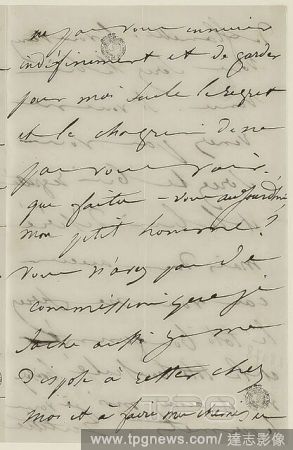 ne pas vous ennuier
indéfiniment et de garder
pour moi seule le regret
et le chagrin de ne
pas vous voir.
que faites-vous aujourd'hui
mon petit homme?
Vous n'avez pas de
commission que je
sache aussi je me
dispose à rester chez
moi et à faire mes
TPG
www.tpgnews.com / 達志影像